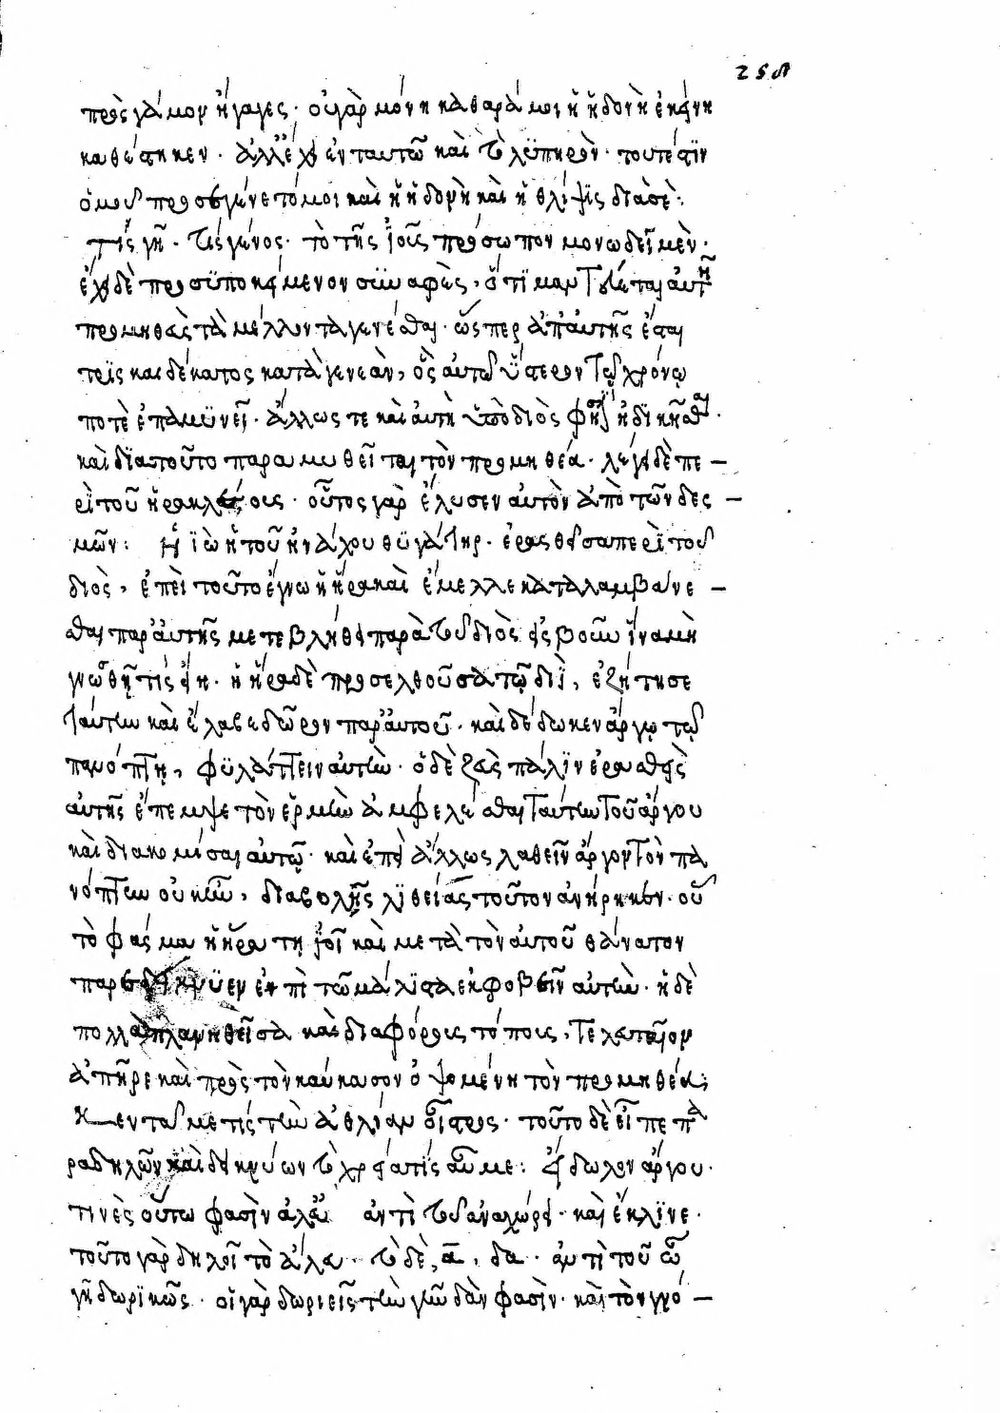 258
πρὸς γάμον ἤγαγες · οὐ γὰρ μόνη καθαρά μοι ἡ ἡδονὴ ἐκείνη
καθέστηκεν · ἀλλ' ἔχει ἐνταυτῶ καὶ τὸ λυπηρὸν · τουτέστϊν
ὁμοῦ προσεγένετό μοι καὶ ἡ ἡδονὴ καὶ ἡ θλίψϊς διὰ σὲ :
Τίς γῆ · τίς γένος · τὸ τῆς ἰοῦς πρόσωπον μονωδεῖ μὲν ·
ἔχει δὲ προσϋποκείμενον συναφὲς, ὅτϊ μαντεύεται αὐτῆ
προμηθεὺς τὰ μέλλοντα γενέσθαι · ὥσπερ ἀπ' αὐτῆς ἔσται
τρὶς και δέκατος κατὰ γενεὰν, ὃς αὐτῶ ὕστερον τῷ χρόνῳ
ποτὲ ἐπαμϋνεῖ · ἄλλως τε καὶ αὐτὴ ὑπὸ διὸς φησὶν ἠδϊκῆσθαι ·
καὶ διατοῦτο παραμυθεῖται τὸν προμηθέα · λέγει δὲ πε –
ρὶ τοῦ ἡρακλέους · οὗτος γὰρ ἔλυσεν αὐτὸν ἀπὸ τῶν δες –
μῶν : Ἡ ἰὼ ἡ τοῦ ἰνάχου θϋγάτηρ · ἐρασθεῖσα περὶ τοῦ
διὸς, ἐπεὶ τοῦτο ἔγνω ἡ ἥρα καὶ ἔμελλε καταλαμβάνε –
σθαι παρ' αὐτῆς μετεβλήθη παρὰ τοῦ διὸς εἰς βοῦν ἵνα μὴ
γνωσθῇ τίς εἴη · ἡ ἥρα δὲ προσελθοῦσα τῷ διῒ, ἐζήτησε
ταύτην καὶ ἔλαβε δῶρον παρ' αὐτοῦ · καὶ δέδωκεν ἄργῳ τῷ
πανόπτῃ, φϋλάττειν αὐτὴν · ὁ δὲ ζεὺς πάλϊν ἐρασθεὶς
αὐτῆς ἔπεμψε τὸν ἑρμῆν ἀφελέσθαι ταύτην τοῦ ἄργου
καὶ διακομίσαι αὐτῷ · καὶ ἐπεὶ ἄλλως λαθεῖν ἄργον τὸν πα
νόπτην οὐκ ἦν, διαβολῆς λϊθείας τοῦτον ἀνήρηκεν · οὗ
τὸ φάσμα ἡ ἥρα τῇ ἰοῖ καὶ μετὰ τὸν αὐτοῦ θάνατον
παρεδείκνϋεν ἐπὶ τῶ μάλϊστα ἐκφοβεῖν αὐτὴν · ἡ δὲ
πολλὰ πλανηθεῖσα καὶ διαφόροις τόποις, τελευταῖον
ἀπῆρε καὶ πρὸς τὸν καύκασον ὀψομένη τὸν προμηθέα :
Κεντεῖ με τίς τὴν ἀθλίαν οἶστρος · τοῦτο δὲ εἶπε πα
ραδηλῶν καὶ δεικνύων τὸ χρίει τίς αὖ με : εἴδωλον ἄργου ·
τινὲς οὕτω φασὶν ἀλεῦ ἀντὶ τοῦ ἀναχώρει · καὶ ἔκλϊνε ·
τοῦτο γὰρ δηλοῖ τὸ ἄλευ · τὸ δὲ, ἆ, δα · ἀντὶ τοῦ ὦ
γῆ δωρϊκῶς · οἱ γὰρ δωριεῖς τὴν γῆν δᾶν φασὶν · καὶ τὸν γνό –